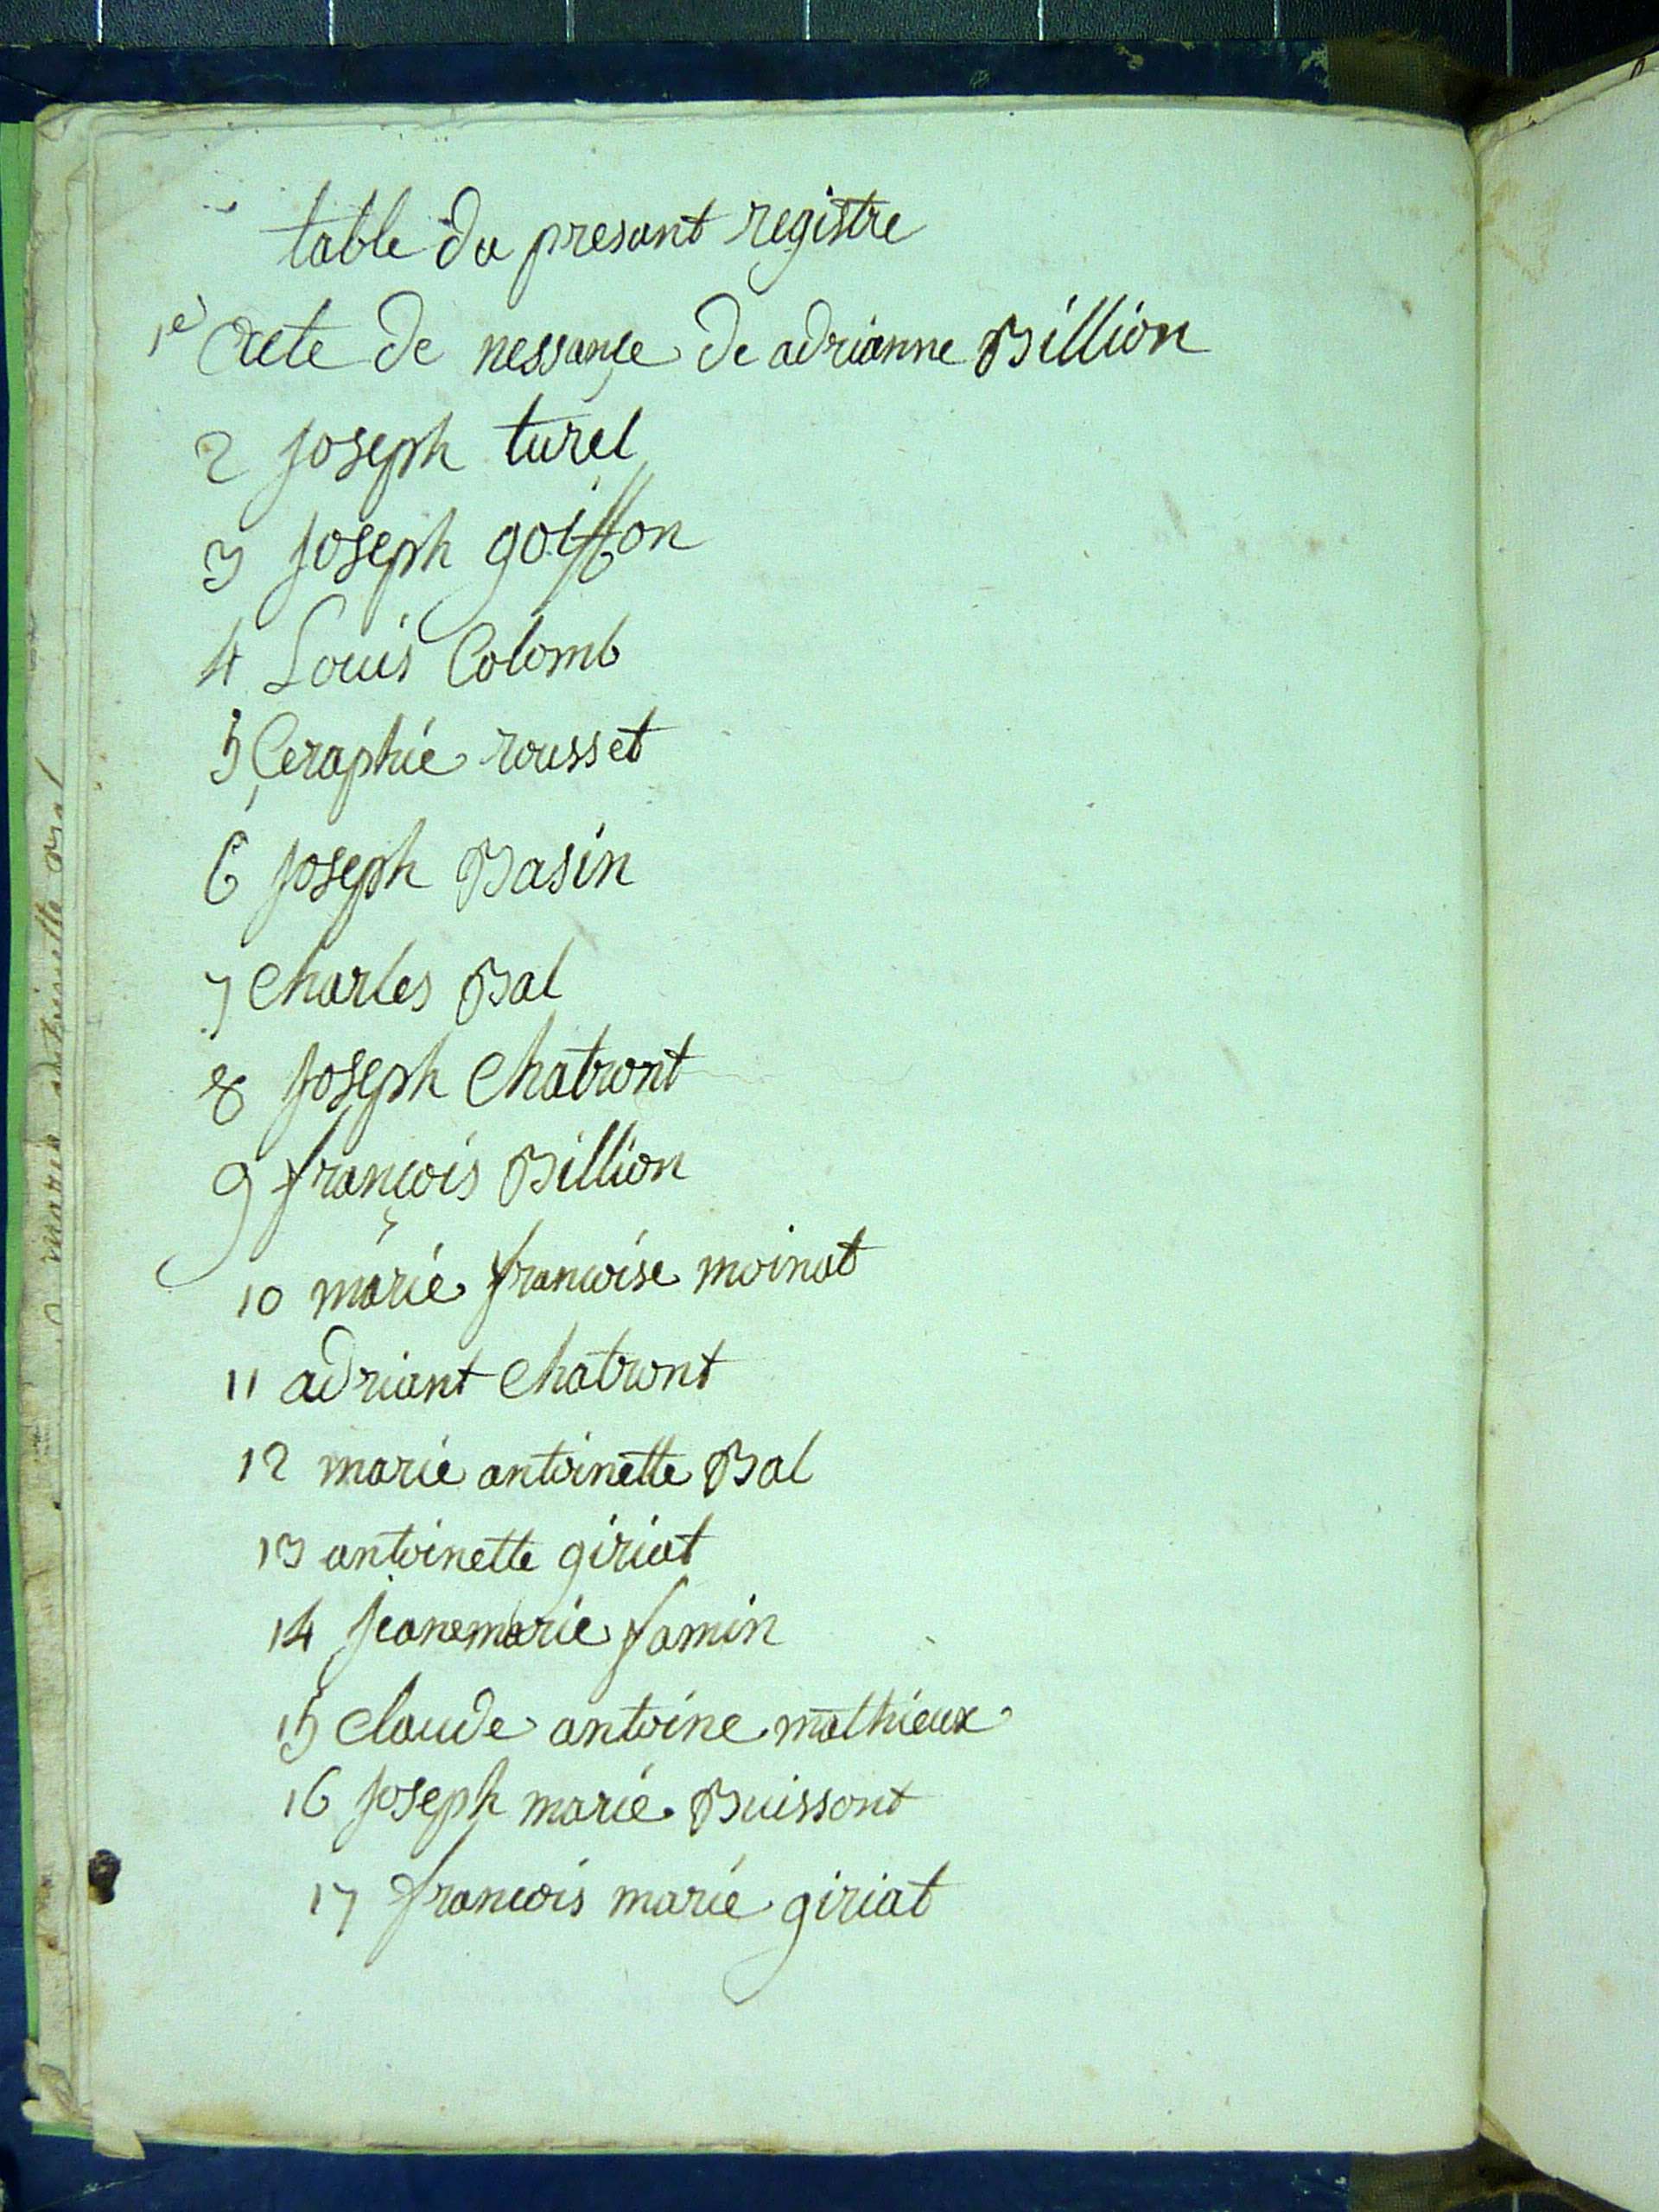 table du presant registre
1e acte de nessançe de adrianne Billion
2 joseph turel
3 joseph goiffon
4 Louis Colomb
5 Çeraphie rousset
6 joseph Basin
7 charles Bal
8 joseph chatront
9 françois Billion
10 marie francoise moinat
11 adriant chatront
12 marie antoinette Bal
13 antoinette giriat
14 jeanemarie famin
15 claude antoine mathieux
16 joseph marie Buissont
17 francois marie giriat